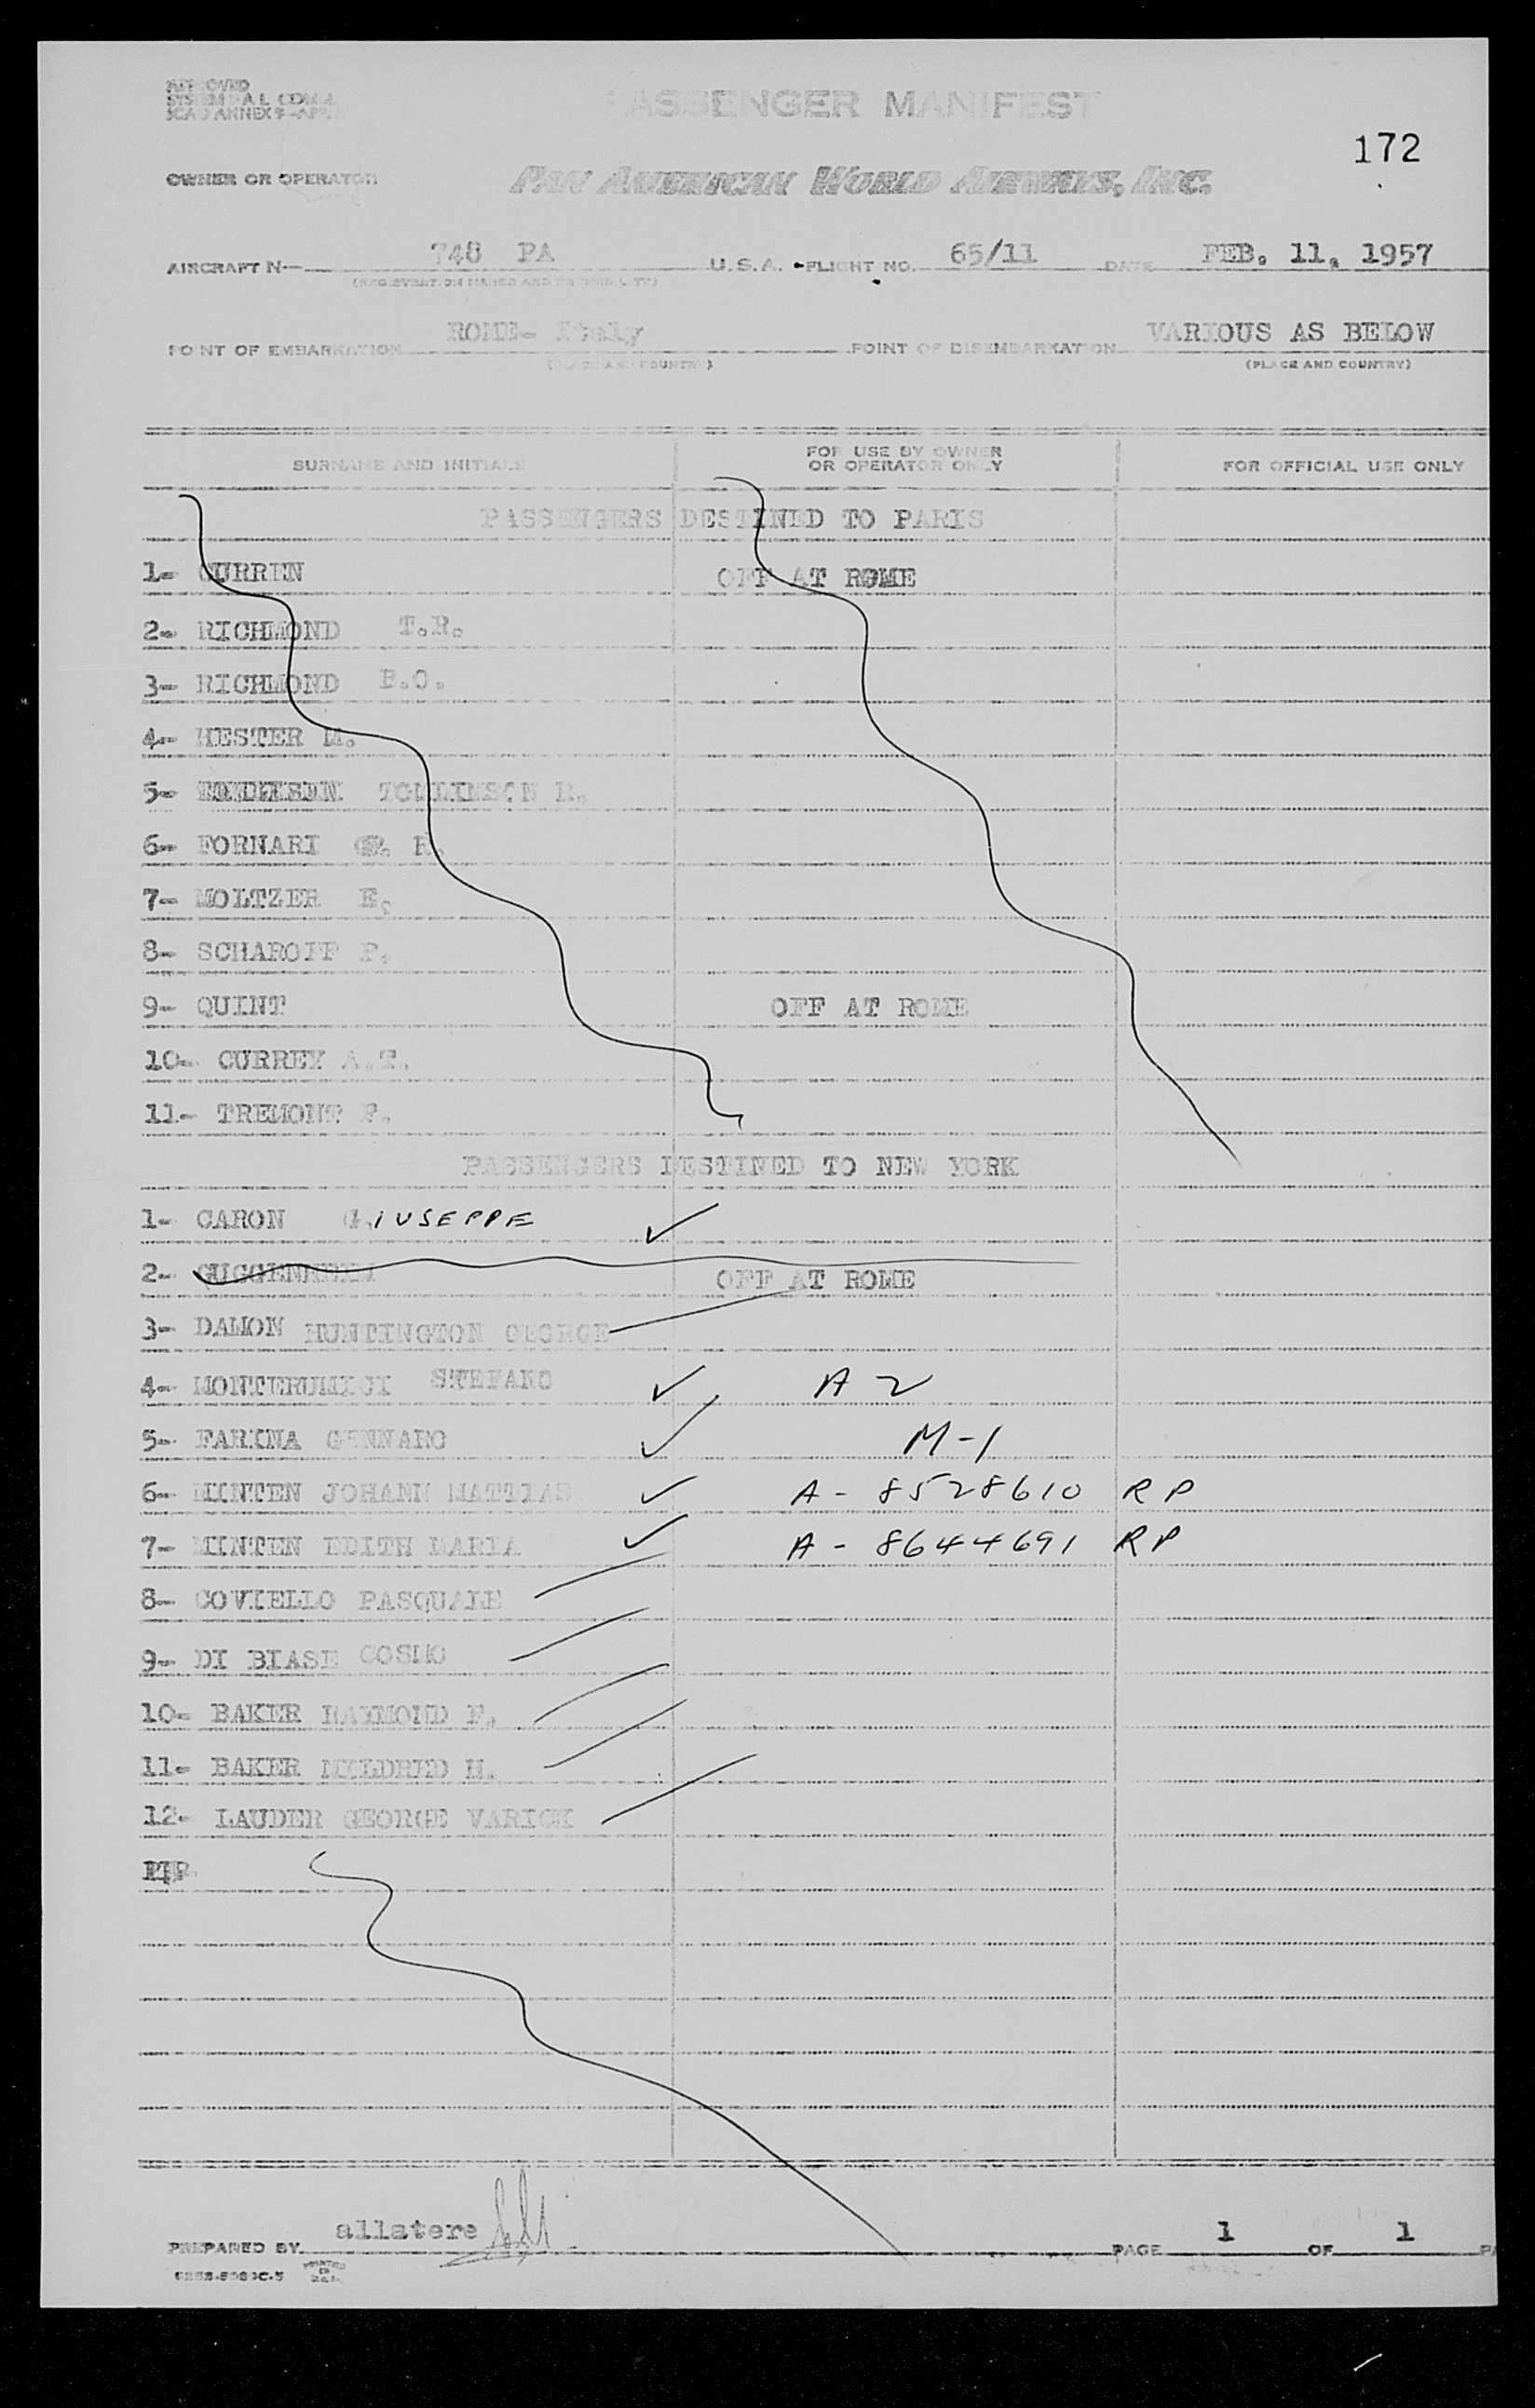 PASSENGER MANIFEST
172
OWNER OR OPERATOR PAN AMERICAN WORLD AIRWAYS, INC.
AIRCRAFT N— 748 PA U.S.A. FLIGHT NO. 65/11 DATE FEB. 11, 1957
POINT OF EMBARKATION ROME- Italy POINT OF DISEMBARKATION VARIOUS AS BELOW
(PLACE AND COUNTRY) (PLACE AND COUNTRY)
SURNAME AND INITIALS FOR USE BY OWNER OR OPERATOR ONLY FOR OFFICIAL USE ONLY
PASSENGERS DESTINED TO PARIS
1- CURREN OFF AT ROME
2- RICHMOND T.R.
3- RICHMOND B.O.
4- HESTER M.
5- TOMLINSON R.
6- FORNARI R.
7- MOLTZER E.
8- SCHAROFF P.
9- QUINT OFF AT ROME
10- CURREY A.T.
11- TREMONT F.
PASSENGERS DESTINED TO NEW YORK
1- CARON GIUSEPPE ✓
2- GUGGENHEIM OFF AT ROME
3- DAMON HUNTINGTON GEORGE
4- MONTERUMICI STEFANO ✓ A 2
5- FARINA GENNARO ✓ M-1
6- MINTEN JOHANN MATTIAS ✓ A - 8528610 RP
7- MINTEN EDITH MARIA ✓ A - 8644691 RP
8- COVIELLO PASQUALE
9- DI BIASE COSMO
10- BAKER RAYMOND F.
11- BAKER MILDRED H.
12- LAUDER GEORGE VARICK
PREPARED BY allatere PAGE 1 OF 1